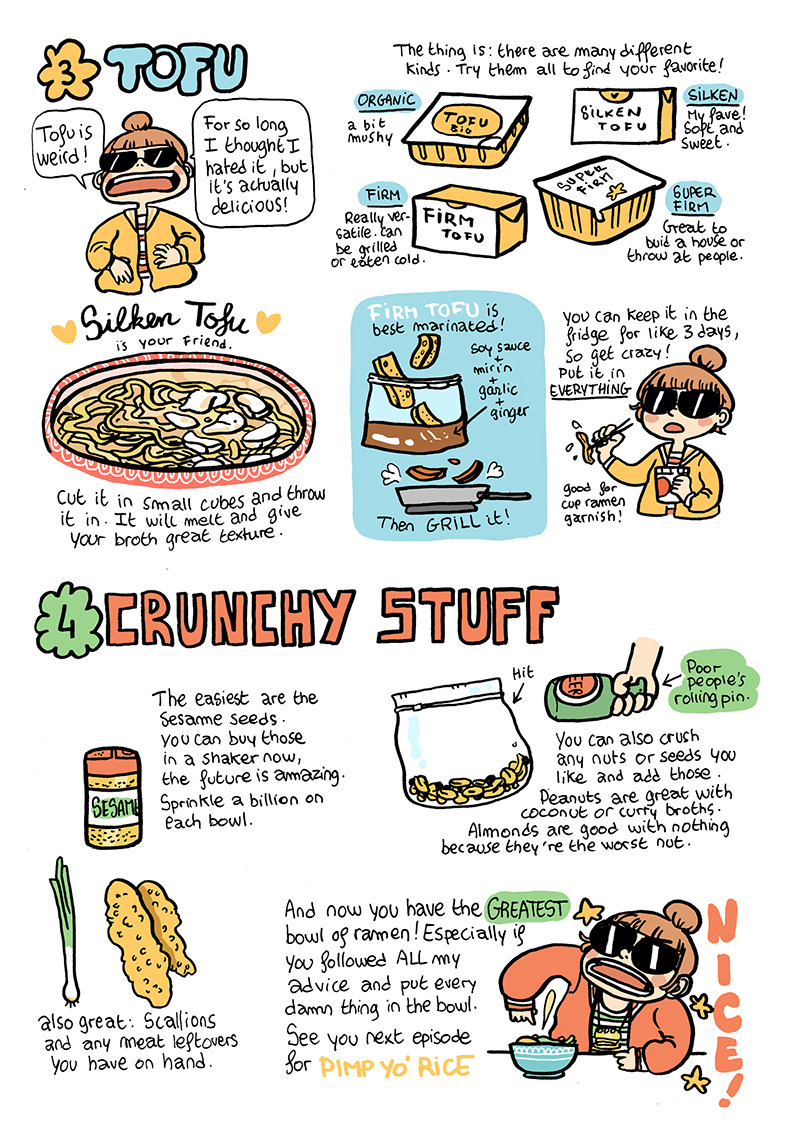 3 TOFU
The thing is: there are many different
kinds. Try them all to find your favorite!
Tofu is
weird!
For so long
I thought I
hated it, but
it's actually
delicious!
ORGANIC
a bit
mushy
TOFU
BIO
SILKEN
TOFU
SILKEN
My fave!
Soft and
sweet.
FIRM
Really ver-
satile. Can
be grilled
or eaten cold.
FIRM
TOFU
SUPER
FIRM
SUPER
FIRM
Great to
buid a house or
throw at people.
Silken Tofu
is your friend.
Cut it in small cubes and throw
it in. It will melt and give
your broth great texture.
FIRM TOFU is
best marinated!
soy sauce
+
mirin
+
garlic
+
ginger
Then GRILL it!
you can keep it in the
fridge for like 3 days,
so get crazy!
Put it in
EVERYTHING
good for
cup ramen
garnish!
4 CRUNCHY STUFF
The easiest are the
Sesame seeds.
you can buy those
in a shaker now,
the future is amazing.
Sprinkle a billion on
each bowl.
SESAME
Hit
Poor
people's
rolling pin.
You can also crush
any nuts or seeds you
like and add those.
Peanuts are great with
coconut or curry broths.
Almonds are good with nothing
because they're the worst nut.
also great: Scallions
and any meat leftovers
you have on hand.
And now you have the GREATEST
bowl of ramen! Especially if
you followed ALL my
advice and put every
damn thing in the bowl.
See you next episode
for PIMP YO' RICE
NICE!